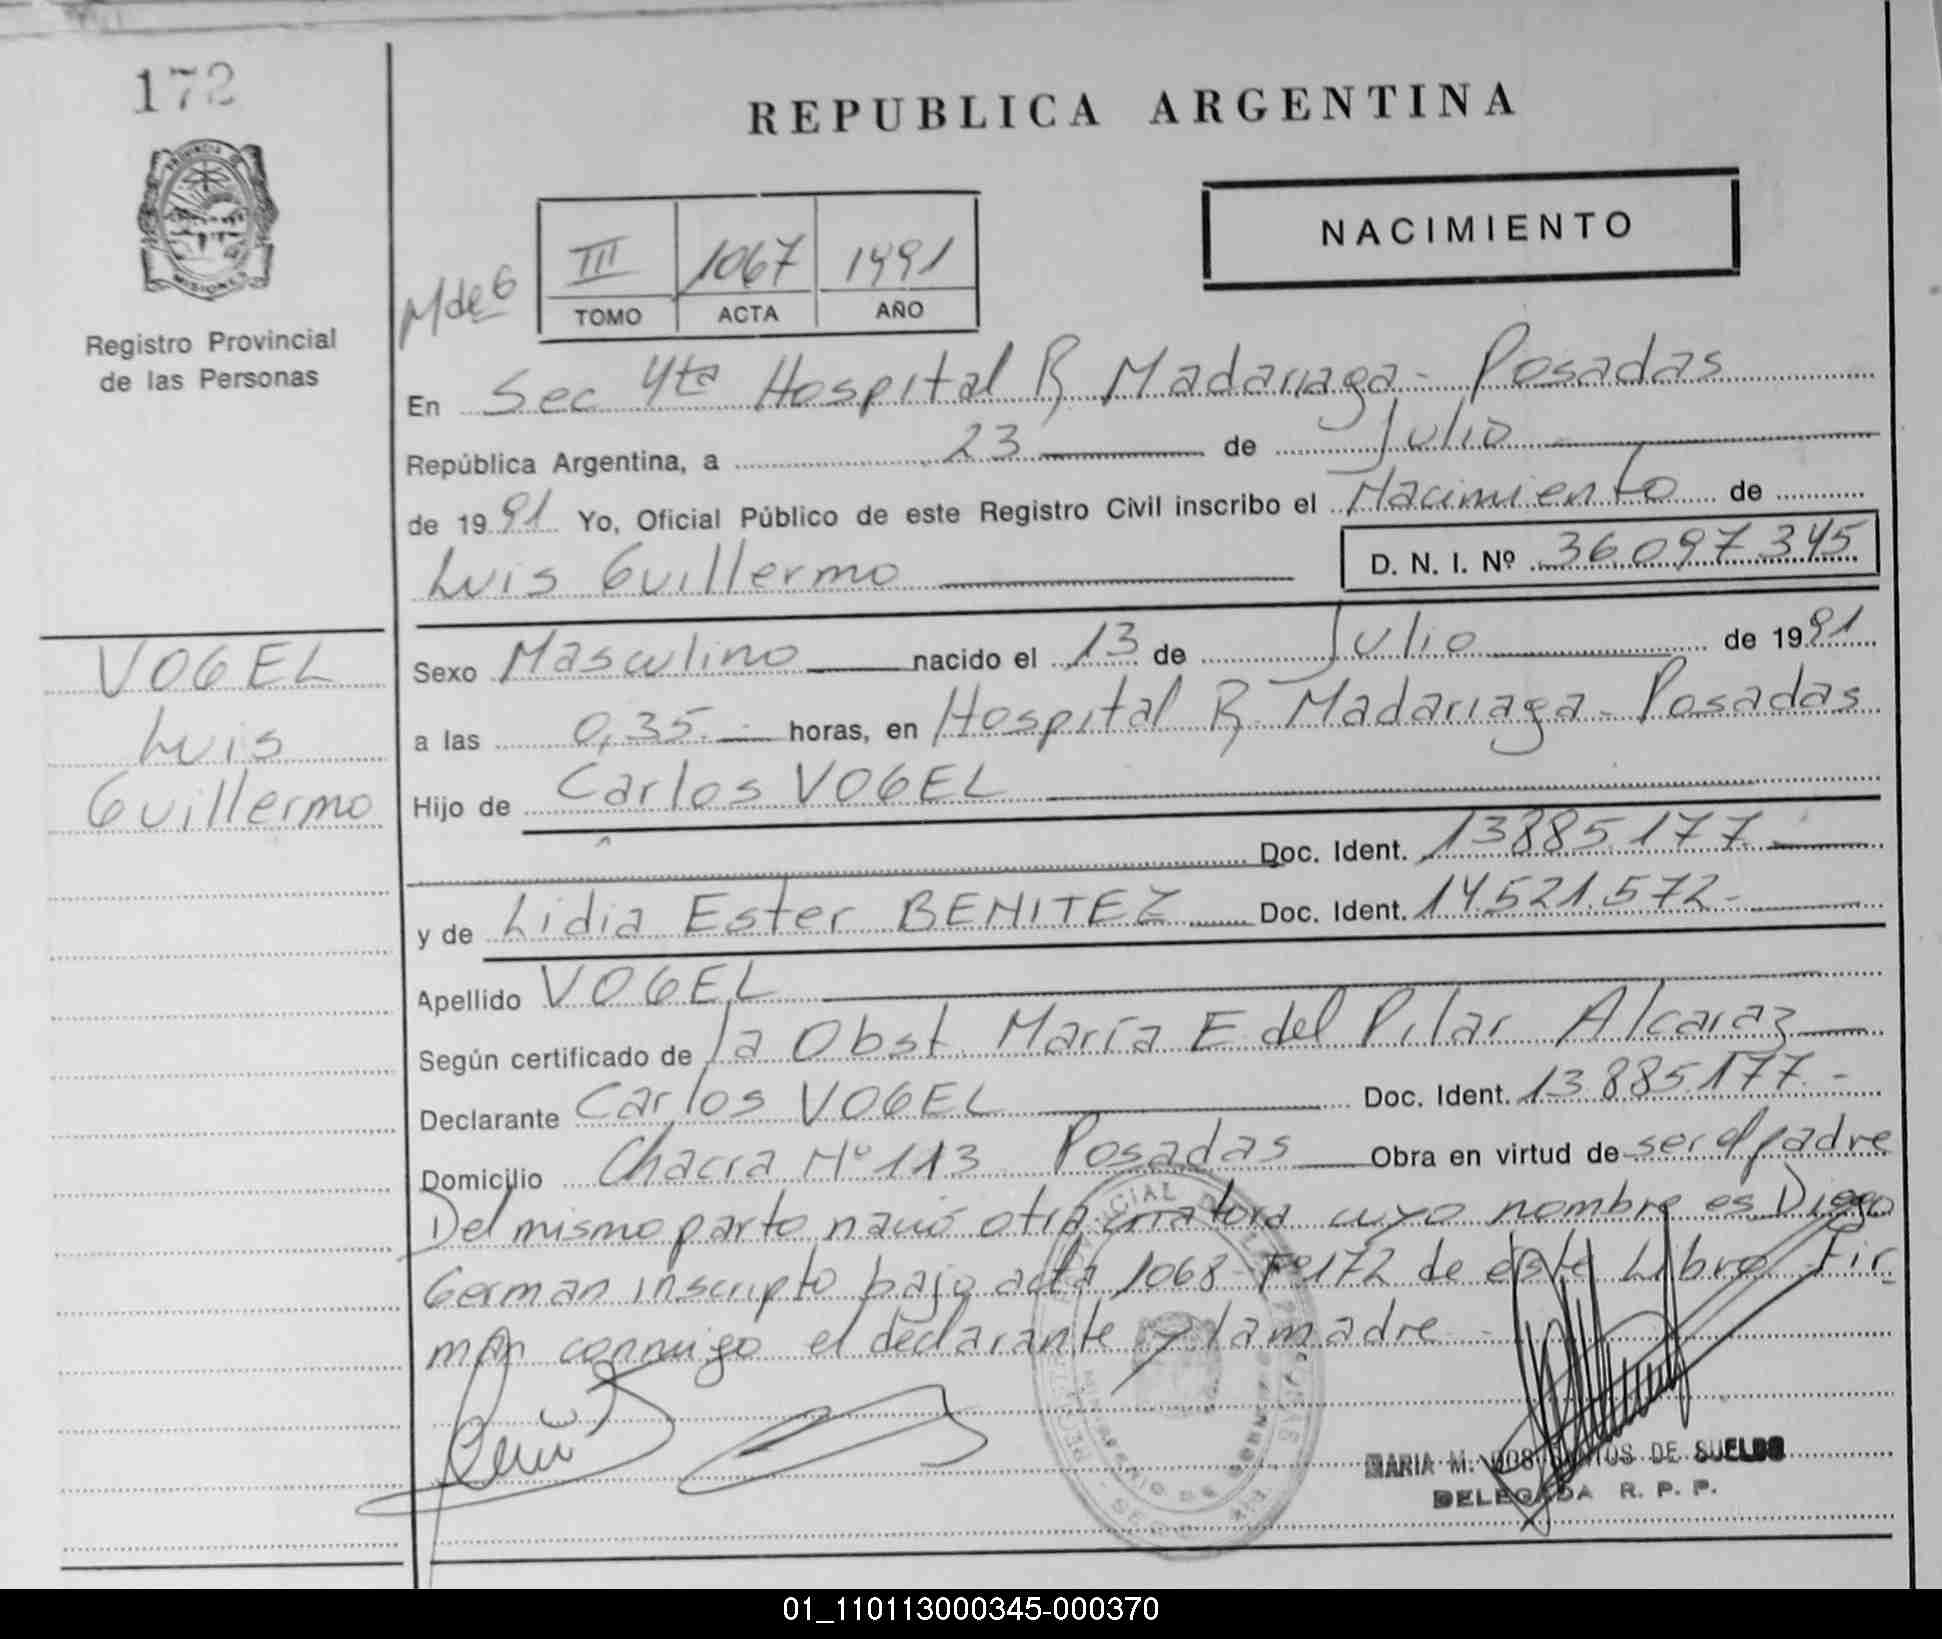 172
REPUBLICA ARGENTINA
NACIMIENTO
PROVINCIA DE
MISIONES
Registro Provincial
de las Personas
M de G
III 1067 1991
TOMO ACTA AÑO
En Sec 4ta Hospital R Madariaga - Posadas
República Argentina, a 23 de Julio
de 1991 Yo, Oficial Público de este Registro Civil inscribo el Nacimiento de
Luis Guillermo D. N. I. Nº 36097345
VOGEL
Luis
Guillermo
Sexo Masculino nacido el 13 de Julio de 1991
a las 0,35.- horas, en Hospital R Madariaga - Posadas
Hijo de Carlos VOGEL
Doc. Ident. 13885177.-
y de Lidia Ester BENITEZ Doc. Ident. 14.521.572-
Apellido VOGEL
Según certificado de la Obst. María E del Pilar Alcaraz
Declarante Carlos VOGEL Doc. Ident. 13.885.177.-
Domicilio Chacra Nº 113 Posadas Obra en virtud de ser el padre
Del mismo parto nació otra criatura cuyo nombre es Diego
German inscripto bajo acta 1068 Fº172 de este Libro Fir
man conmigo el declarante y la madre -
MARIA M. DOS SANTOS DE SUELDO
DELEGADA R. P. P.
01_110113000345-000370